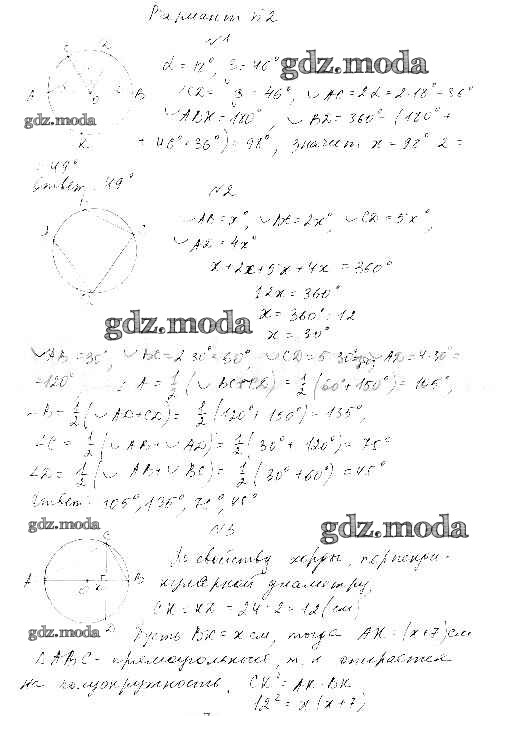 Вариант №2
№1
α = 18°, β = 46° gdz.moda
∠CD = β = 46°, ◡AC = 2α = 2·18° = 36°
gdz.moda ◡ADK = 180°, ◡BD = 360° - (180° +
+ 46° + 36°) = 98°, значит x = 98° : 2 =
= 49°
Ответ: 49°
№2
◡AB = x°, ◡BC = 2x°, ◡CD = 5x°,
◡AD = 4x°
x + 2x + 5x + 4x = 360°
12x = 360°
x = 360° : 12
gdz.moda
x = 30°
◡AB = 30°, ◡BC = 2·30° = 60°, ◡CD = 5·30° = 150°, ◡AD = 4·30° =
= 120°, ∠A = 1/2 (◡BC + CD) = 1/2 (60° + 150°) = 105°,
∠B = 1/2 (◡AD + CD) = 1/2 (120° + 150°) = 135°,
∠C = 1/2 (◡AB + ◡AD) = 1/2 (30° + 120°) = 75°
∠D = 1/2 (◡AB + ◡BC) = 1/2 (30° + 60°) = 45°
Ответ: 105°, 135°, 75°, 45°
gdz.moda №3 gdz.moda
По свойству хорды, перпенди-
кулярной диаметру,
CK = KD = 24 : 2 = 12 (см)
gdz.moda Пусть BK = x см, тогда AK = (x+7) см
△ABC - прямоугольный, т.к. опирается
на полуокружность, CK² = AK·BK
12² = x(x+7)